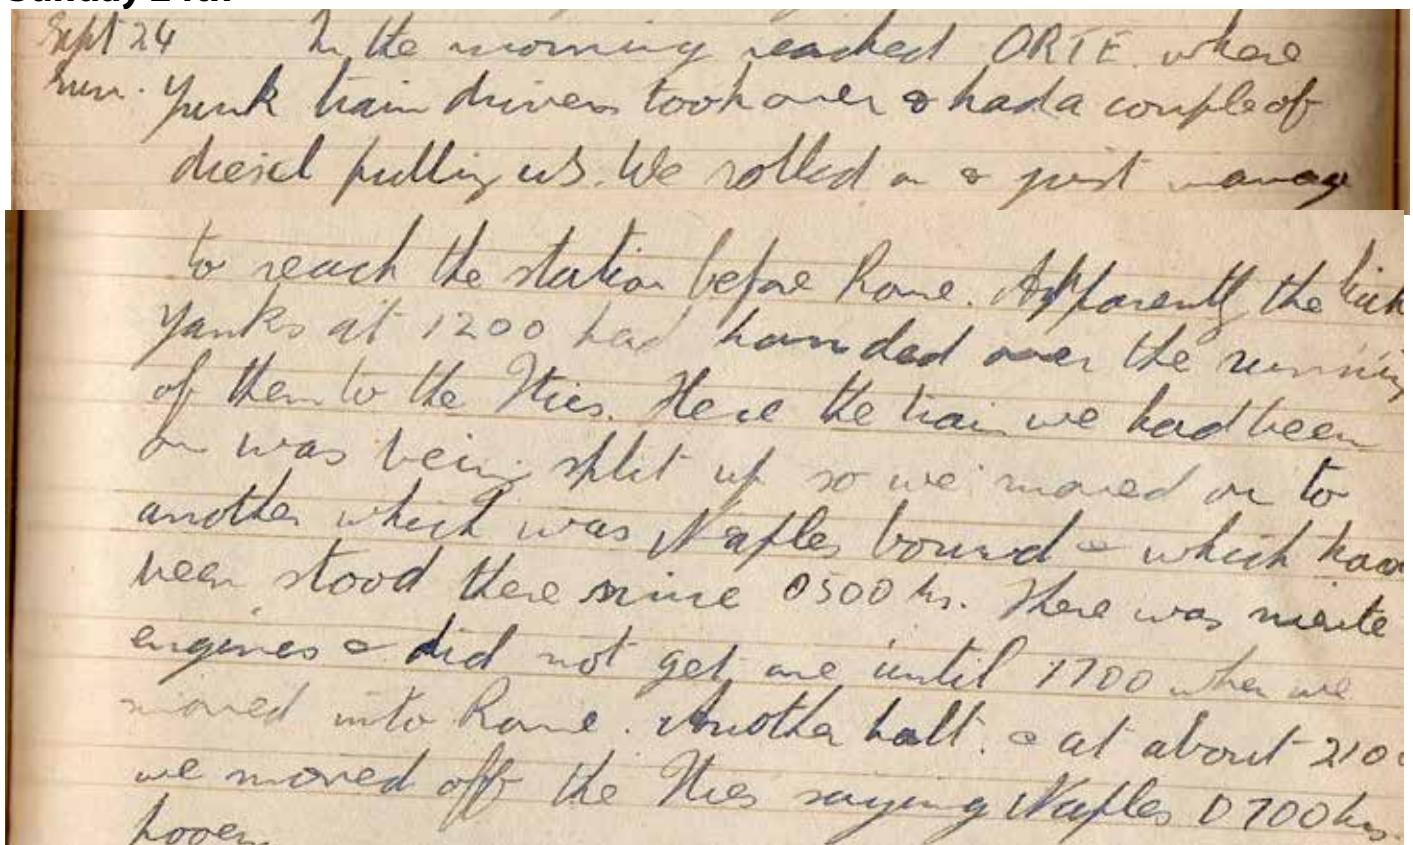 Sunday 24th
Sept 24 In the morning reached ORTE. where
Sun. Yank train drivers took over & had a couple of
diesel pulling us. We rolled on & just manage
to reach the station before Rome. Apparently the
Yanks at 1200 had handed over the running
of them to the Ities. Here the train we had been
on was being split up so we moved on to
another which was Naples bound & which had
been stood there since 0500 hrs. There was niente
engines & did not get one until 1700 when we
moved into Rome. Another halt. & at about 2100
we moved off the Ities saying Naples 0700 hrs.